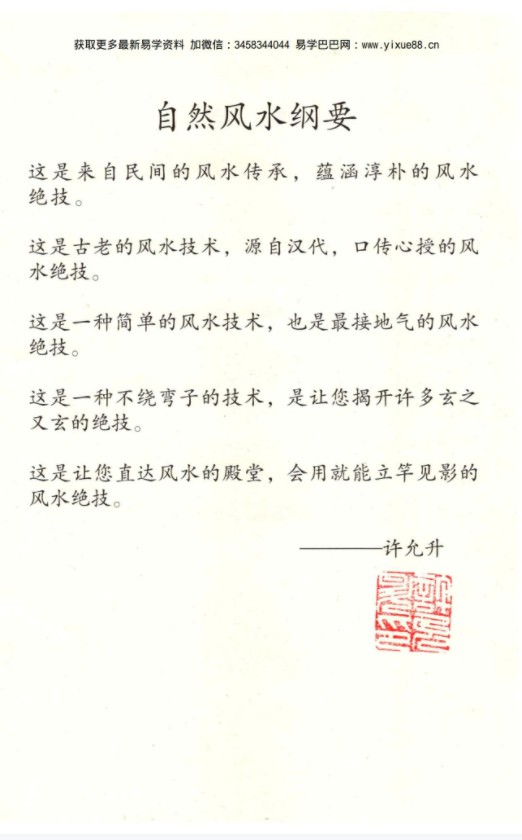 获取更多最新易学资料 加微信：3458344044 易学巴巴网：www.yixue88.cn
自然风水纲要
这是来自民间的风水传承，蕴涵淳朴的风水
绝技。
这是古老的风水技术，源自汉代，口传心授的风
水绝技。
这是一种简单的风水技术，也是最接地气的风水
绝技。
这是一种不绕弯子的技术，是让您揭开许多玄之
又玄的绝技。
这是让您直达风水的殿堂，会用就能立竿见影的
风水绝技。
————许允升